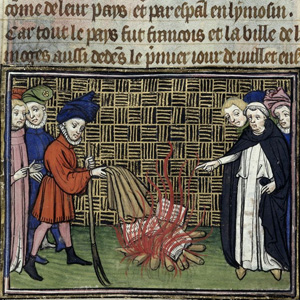 cōme de leur pays et par espal en lymosin.
Car tout le pays fut francois et la ville de l
aussi dedēs le p̄mier iour de iuillet en